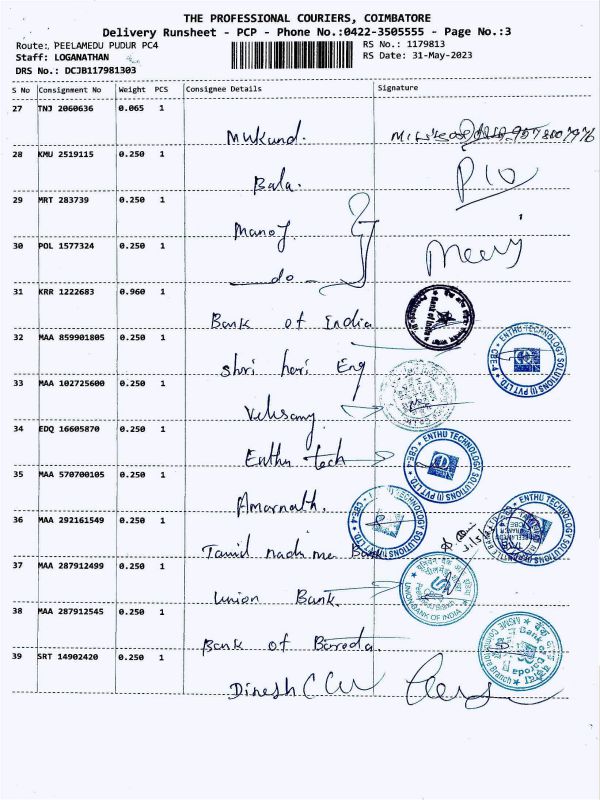 THE PROFESSIONAL COURIERS, COIMBATORE
Delivery Runsheet - PCP - Phone No.:0422-3505555 - Page No.:3
Route: PEELAMEDU PUDUR PC4
RS No.: 1179813
Staff: LOGANATHAN
RS Date: 31-May-2023
DRS No.: DCJB117981303
S No Consignment No Weight PCS Consignee Details Signature
27 TNJ 2060636 0.065 1
Mukund.
28 KMU 2519115 0.250 1
Bala.
29 MRT 283739 0.250 1
Manoj
30 POL 1577324 0.250 1
do
31 KRR 1222683 0.960 1
Bank of India
32 MAA 859901805 0.250 1
Shri hari Eng
ENTHU TECHNOLOGY SOLUTIONS (I) PVT LTD CBE-4
33 MAA 102725600 0.250 1
34 EDQ 16605870 0.250 1
Enthu tech
ENTHU TECHNOLOGY SOLUTIONS (I) PVT LTD CBE-4
35 MAA 570700105 0.250 1
Amarnath.
36 MAA 292161549 0.250 1
Bank
37 MAA 287912499 0.250 1
Union Bank.
UNION BANK OF INDIA
38 MAA 287912545 0.250 1
Bank of Baroda.
Bank of Baroda
39 SRT 14902420 0.250 1
Dinesh